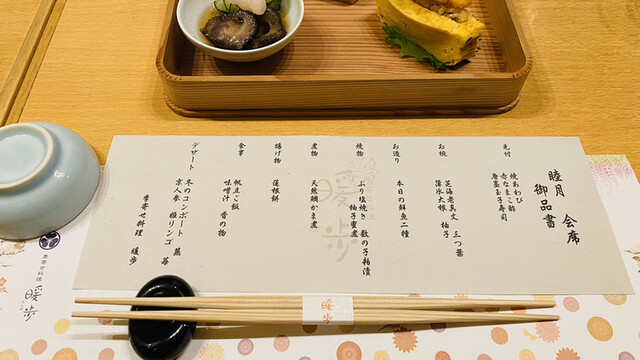 睦月 会席
御品書
先付
焼あわび
赤なまこ酢
唐墨玉子寿司
お椀
芝海老真丈 三つ葉
薄氷大根 柚子
お造り
本日の鮮魚二種
焼物
ぶり塩焼き 数の子粕漬
柚子蜜煮
煮物
天然鯛かま煮
揚げ物
蓮根餅
食事
帆立ご飯
味噌汁 香の物
デザート
冬のコンポート 蕪
京人参 姫リンゴ 苺
季寄せ料理 暖歩
暖歩
季寄せ料理
暖歩
暖歩